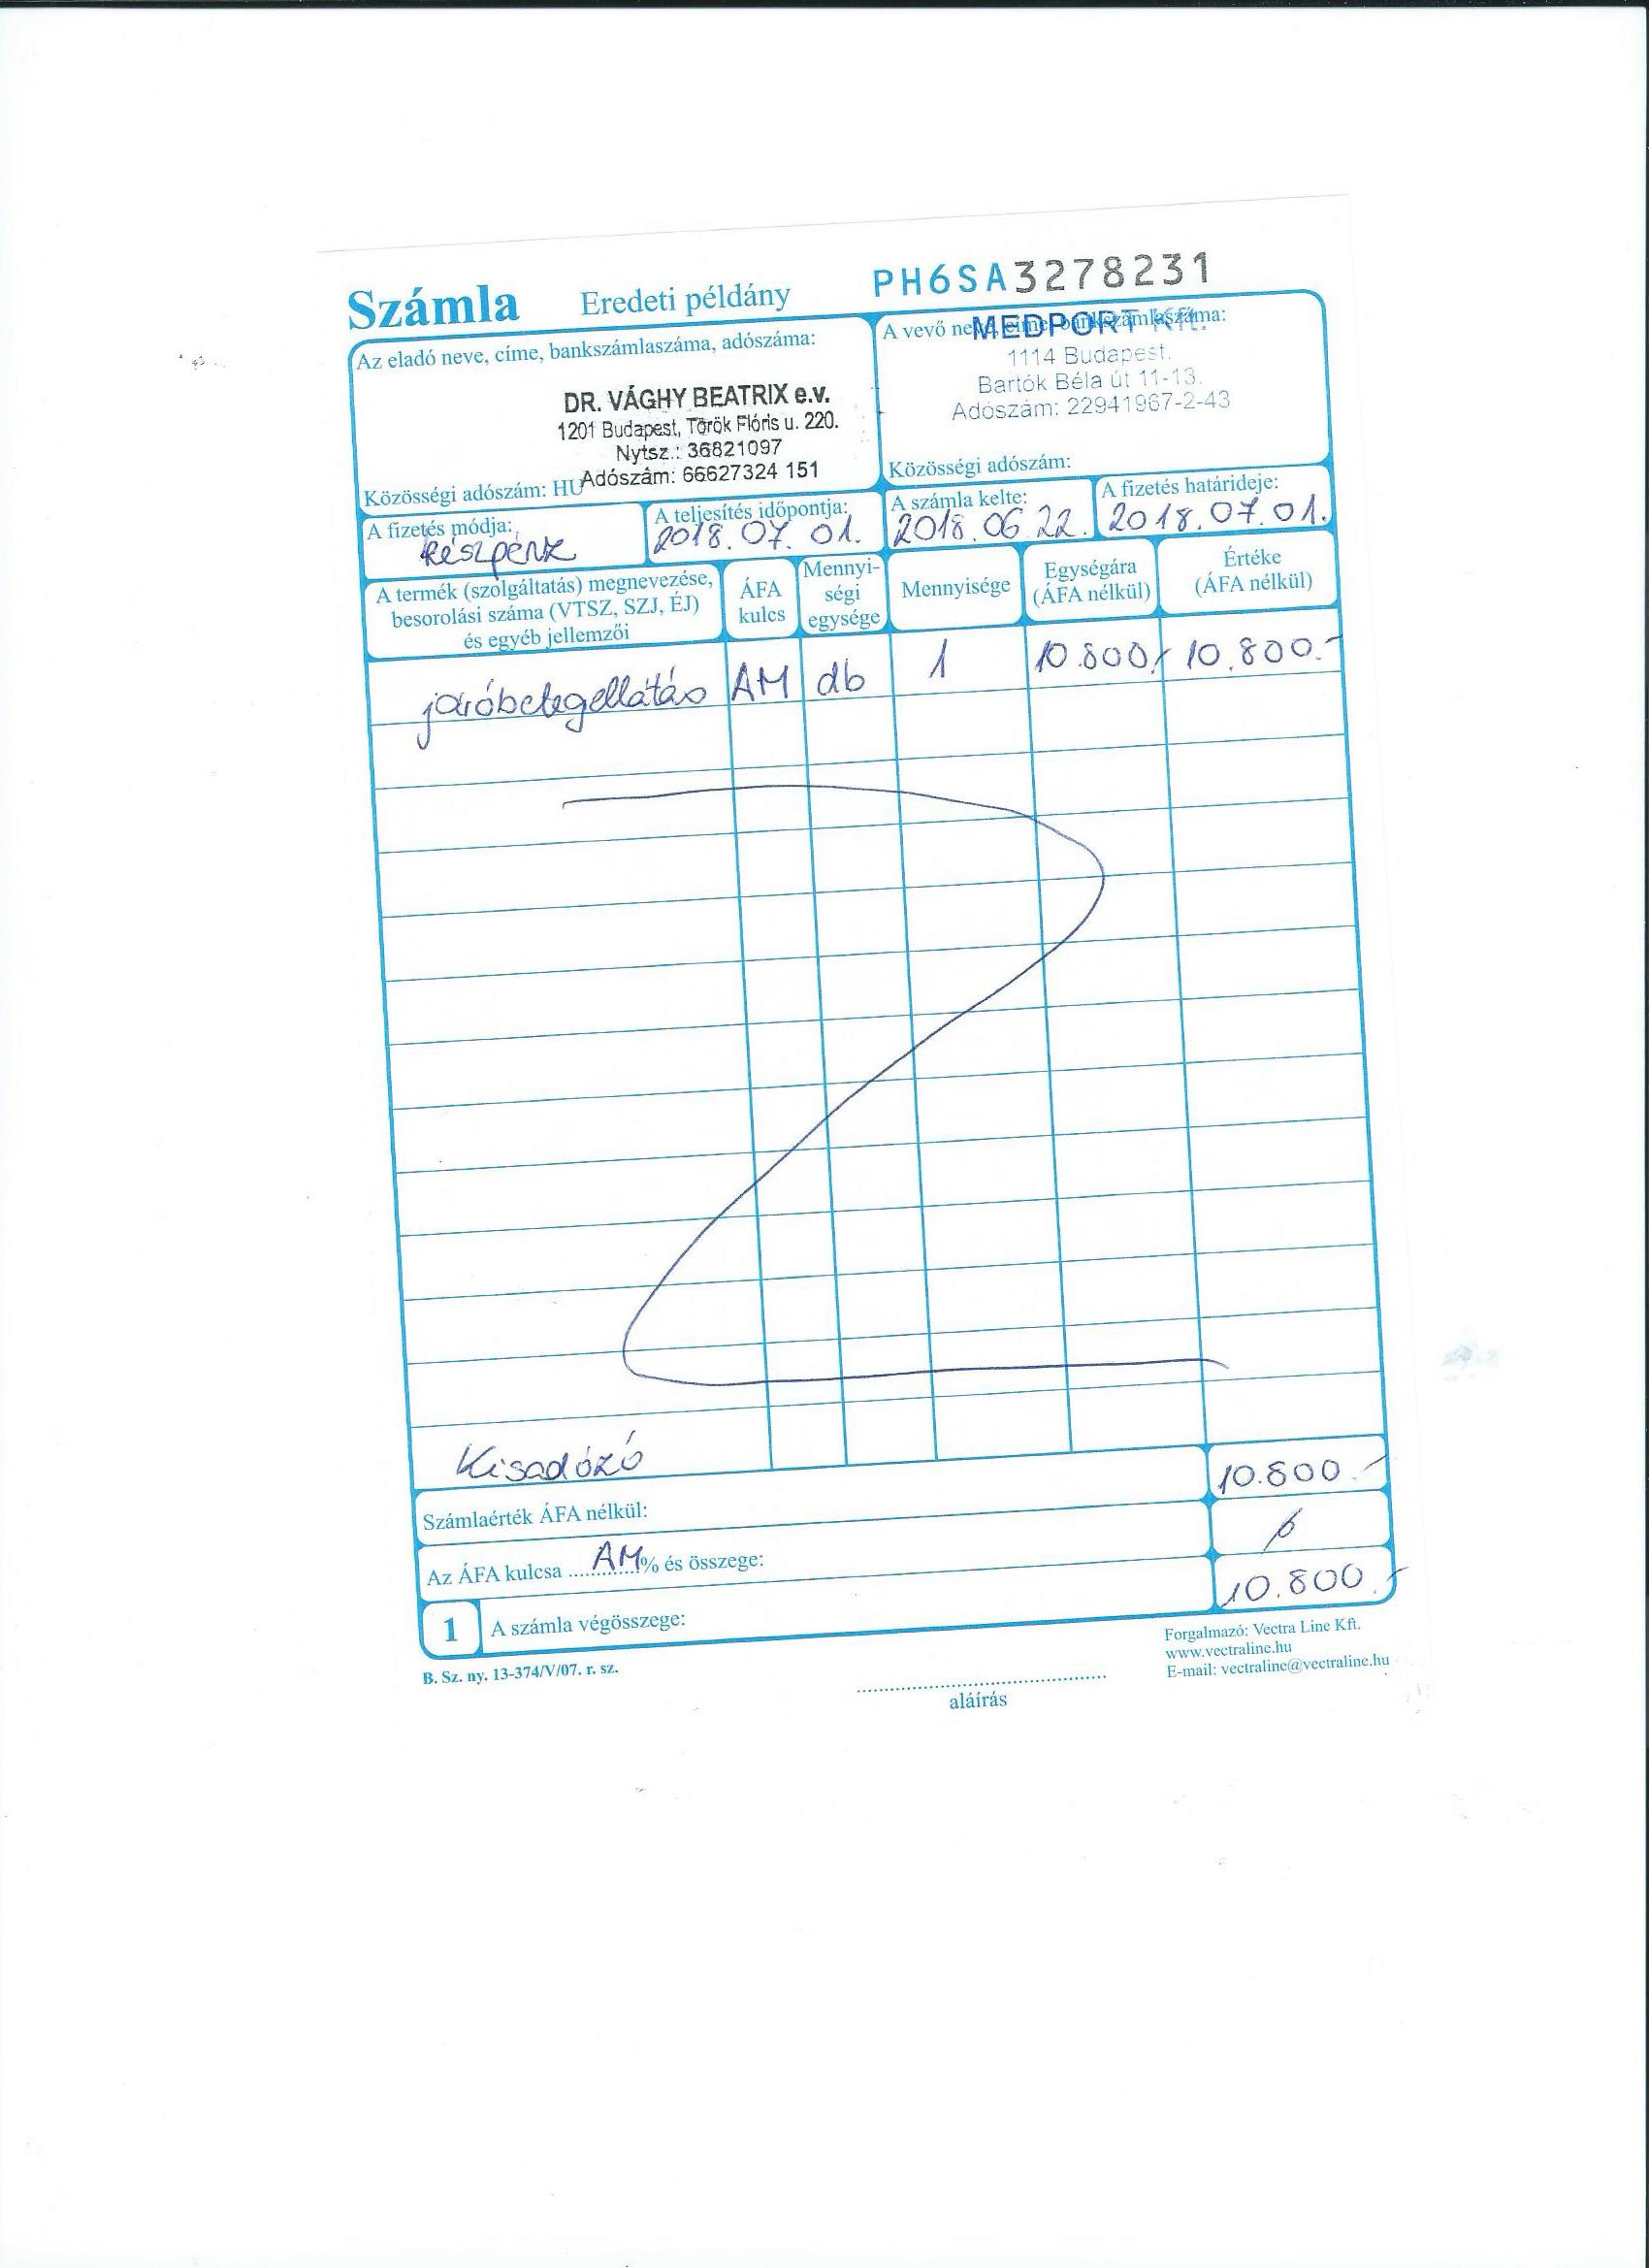 Számla Eredeti példány PH6SA3278231
Az eladó neve, címe, bankszámlaszáma, adószáma:
DR. VÁGHY BEATRIX e.v.
1201 Budapest, Török Flóris u. 220.
Nytsz.: 36821097
Adószám: 66627324 151
Közösségi adószám: HU
A vevő neve, címe, bankszámlaszáma:
MEDPORT Kft.
1114 Budapest.
Bartók Béla út 11-13.
Adószám: 22941967-2-43
Közösségi adószám:
A fizetés módja:
készpénz
A teljesítés időpontja:
2018.07.01.
A számla kelte:
2018.06.22.
A fizetés határideje:
2018.07.01.
A termék (szolgáltatás) megnevezése,
besorolási száma (VTSZ, SZJ, ÉJ)
és egyéb jellemzői
ÁFA
kulcs
Mennyi-
ségi
egysége
Mennyisége
Egységára
(ÁFA nélkül)
Értéke
(ÁFA nélkül)
járóbetegellátás AM db 1 10.800,- 10.800.-
Kisadózó
Számlaérték ÁFA nélkül: 10.800.-
Az ÁFA kulcsa ....AM....% és összege: 0
1 A számla végösszege: 10.800.-
B. Sz. ny. 13-374/V/07. r. sz.
aláírás
Forgalmazó: Vectra Line Kft.
www.vectraline.hu
E-mail: vectraline@vectraline.hu